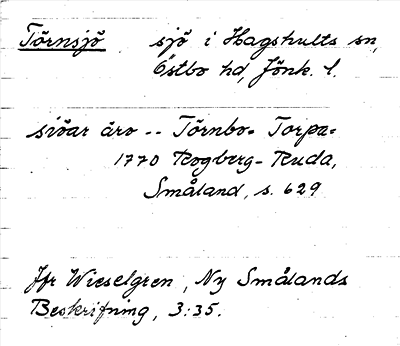 Törnsjö sjö i Hagshults sn,
Östbo hd, Jönk. l.
siöar äro -- Törnbo= Torpa=
1770 Rogberg-Ruda,
Småland, s. 629
Jfr Wieselgren, Ny Smålands
Beskrifning, 3:35.